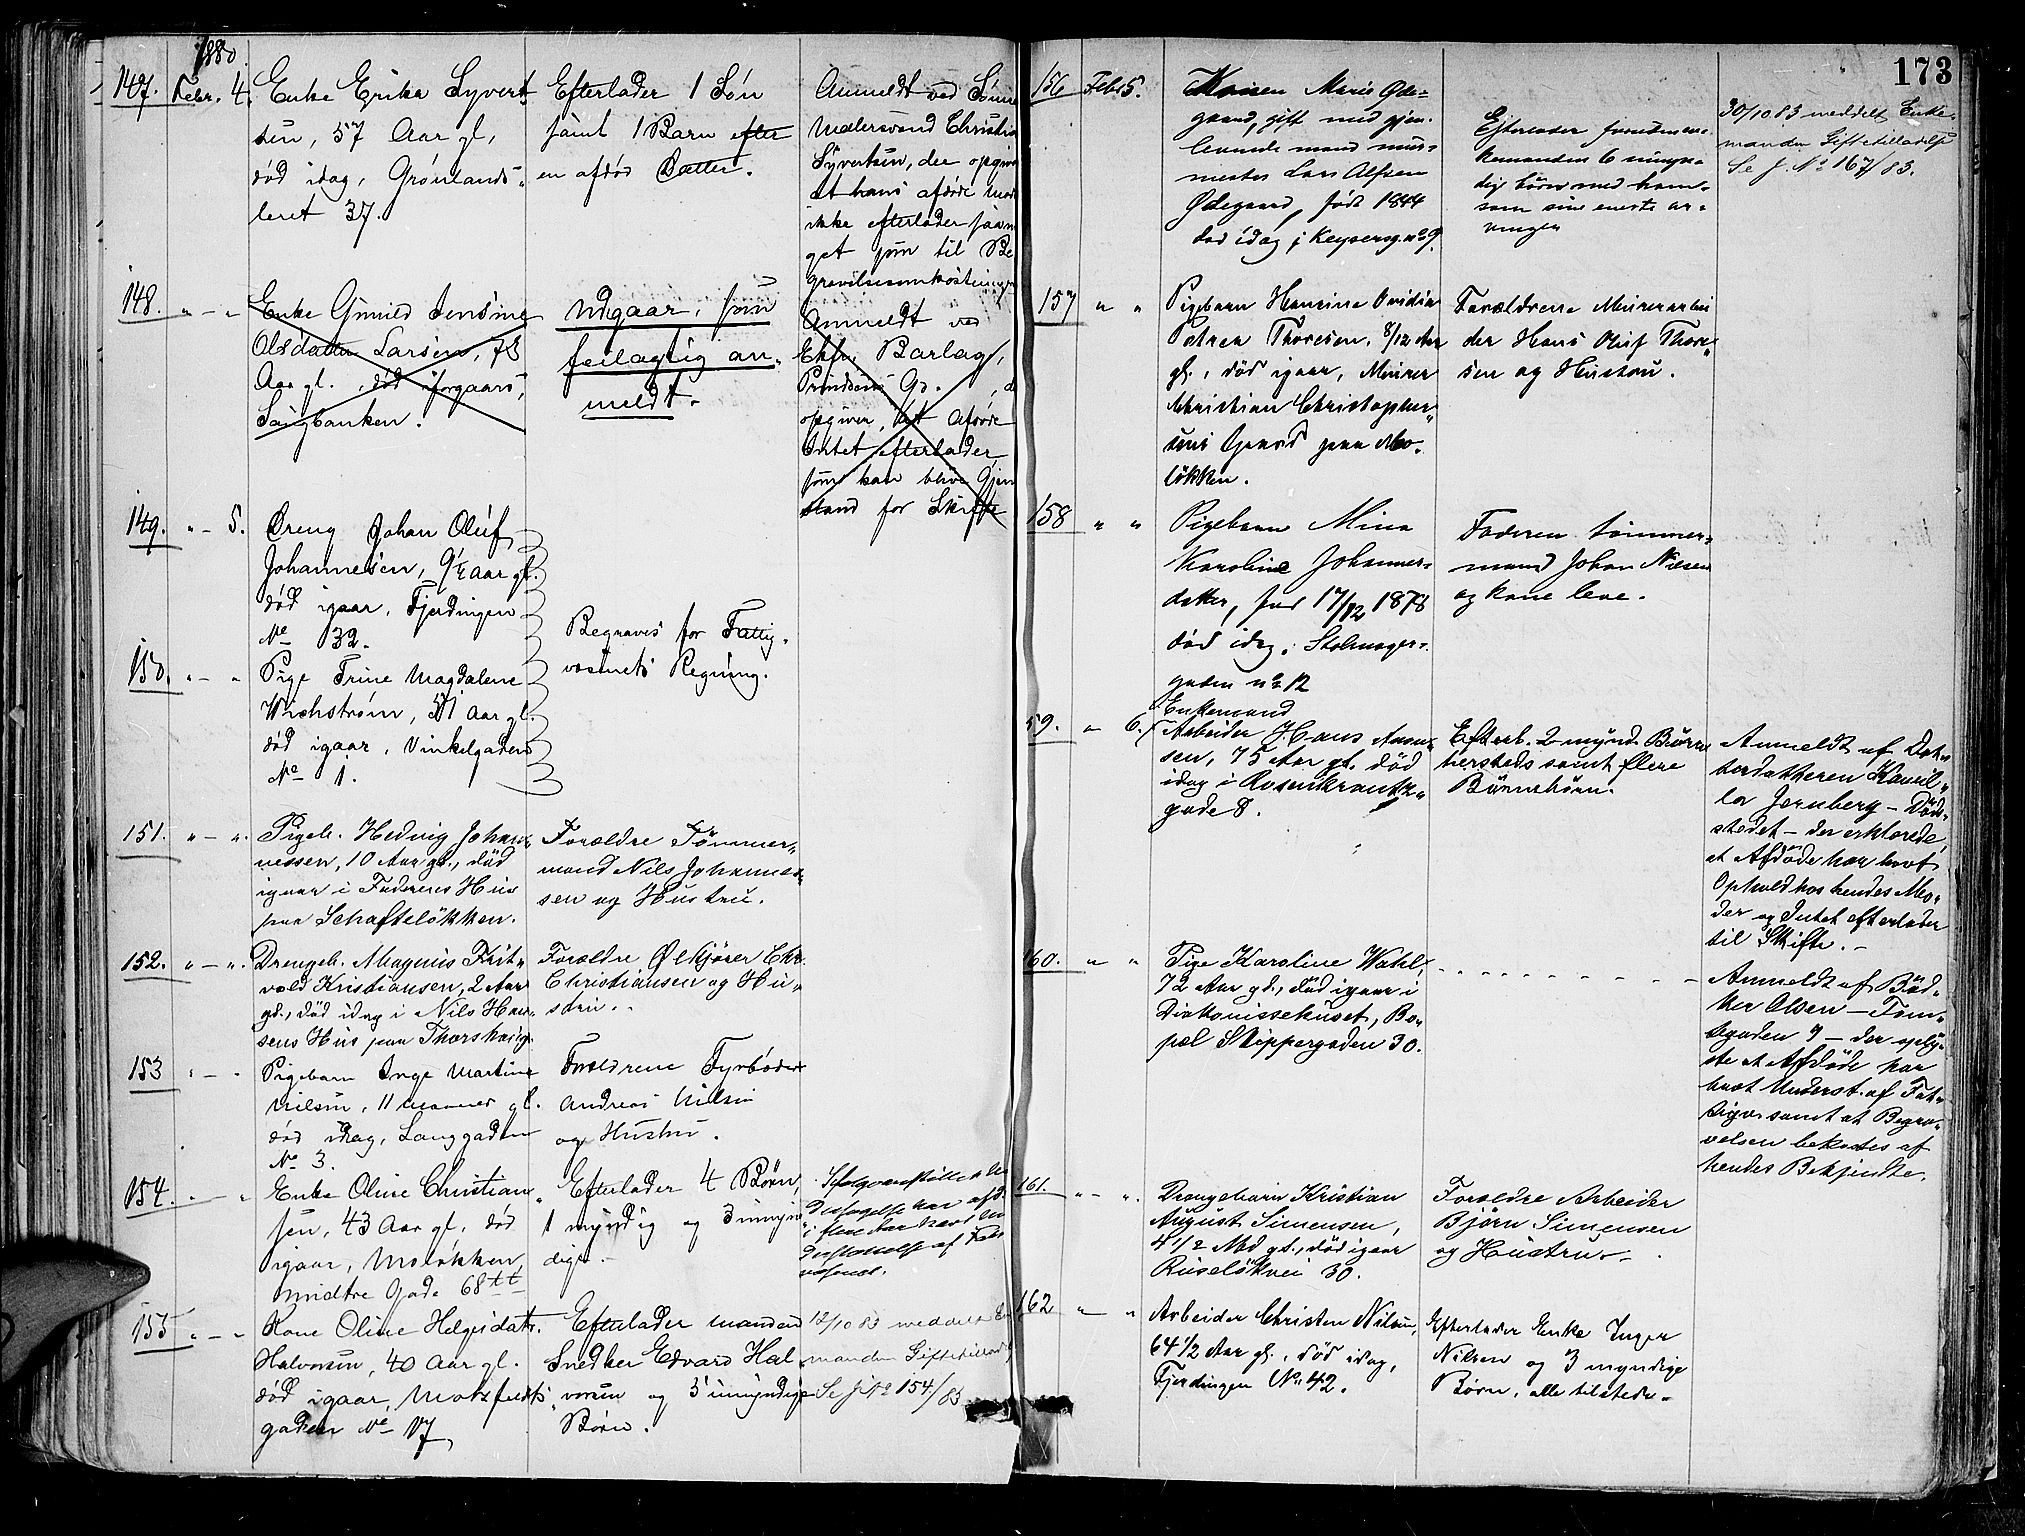 1880.
147. Febr. 4. Enke Erika Syvert-
sen, 57 Aar gl,
død idag, Grönlands-
leret 37.
Efterlader 1 Søn
samt 1 Barn efter
en afdød Datter.
Anmeldt ved Sønnen
Malersvend Christian
Syvertsen, der opgiver
at hans afdøde Mor
ikke efterlader saa me-
get som til Be-
gravelsesomkostninger
148. " - " Enke Gunild Jensine
Olsdatter Larsen, 73
Aar gl. død iforgaars,
Saugbanken.
Udgaar, som
feilagtig an-
meldt.
Anmeldt ved
Barlag,
Prindsens Gd.
opgiver, at Afdøde
Intet efterlader,
som kan blive Gjen-
stand for Skifte
149. " - 5. Dreng Johan Oluf
Johannesen, 9½ Aar gl.
død igaar, Fjerdingen
No 32.
150. " - " Pige Trine Magdalene
Wichstrøm, 51 Aar gl.
død igaar, Vinkelgaden
No 1.
Begraves for Fattig-
væsnets Regning.
151. " - " Pigeb. Hedvig Johan-
nessen, 10 Aar gl., død
igaar i Faderens Hus
paa Schafteløkken.
Forældre Tömmer-
mand Nils Johannes-
sen og Hustru.
152. " - " Drengeb. Magnus Frit-
vold Kristiansen, 2 Aar
gl., død idag i Nils Han-
sens Hus paa Thorshaug.
Forældre Ølkjører Chr.
Christiansen og Hu-
stru.
153 " - " Pigebarn Inga Martine
Nilsen, 11 Maaneder gl.
død idag, Langgaden
No 3.
Forældrene Fyrbøder
Andreas Nilsen
og Hustru.
154. " - " Enke Oline Christian-
sen, 43 Aar gl, død
igaar, Moløkken,
midtre Gade 68
Efterlader 4 Børn,
1 myndig og 3 umyn-
dige.
155 " - " Kone Oline Helgesdatr.
Halvorsen, 40 Aar gl.
død igaar, Motzfeldts-
gaden No 17
Efterlader manden
Snedker Edvard Hal-
vorsen og 5 umyndige
Børn.
12/10 83 meddelt En
manden Giftetillad
Se J No 154/83
173
156 Febr 5. Konen Marie Øde-
gaard, gift med gjen-
levende mand mur-
mester Lars Alfsen
Ødegaard, født 1844
død idag i Keysersg. no 9.
Efterlader foruden en-
kemanden 6 umyn-
dige børn med ham
som sine eneste ar-
vinger
30/10 83 meddelt Enke-
manden Giftetilladelse
Se J. No 167/83.
157 " " Pigebarn Hansine Ovidia
Petrea Thoresen, 8/12 Aar
gl., død igaar, Murer
Christian Christopher-
sens Gaard paa Mo-
løkken.
Forældrene Murerarbei-
der Hans Oluf Thore-
sen og Hustru.
158 " " Pigebarn Mina
Karoline Johannes-
datter, fød 17/12 1878
død idag, Stolmager-
gaden no 12
Faderen tømmer-
mand Johan Nilsen
og kone leve.
59. " 6. Enkemand
Arbeider Hans Amund-
sen, 75 Aar gl. død
idag i Rosenkrantz-
gade 8.
Efterl. 2 mynd. Børn
hersteds samt flere
Börnebörn.
Anmeldt af Dat-
terdatteren Kamil-
la Jernberg - Døds-
stedet - der erklærede,
at Afdøde har havt
Ophold hos hendes Mo-
der og Intet efterlader
til Skifte. -
160. " " Pige Karoline Wahl,
72 Aar gl., død igaar i
Diakonissehuset, Bo-
pæl Skippergaden 30.
Anmeldt af Bød-
ker Olsen - Tom-
tegaden 7 - der oply-
ste at Afdøde har
havt Underst. af Fat-
tigv. samt at Begra-
velsen bekostes af
hendes Bekjendte.
161. " - " Drengebarn Kristian
August Simensen,
4 1/2 Md gl., død igaar
Ruseløkvei 30.
Forældre Arbeider
Björn Simensen
og Hustru.
162 " - " Arbeider Christen Nilsen,
64 1/2 Aar gl., død idag,
Fjerdingen No 42.
Efterlader Enke Inger
Nilsen og 3 myndige
Børn, alle tilstede.